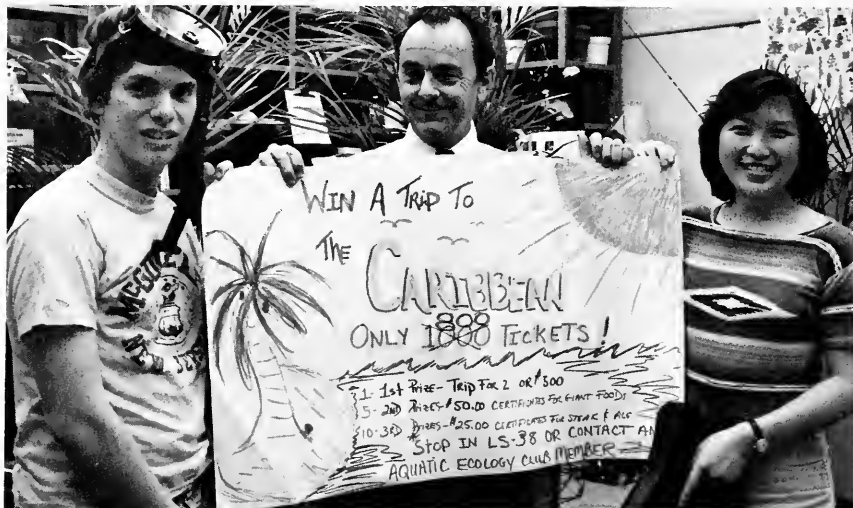 WIN A TRIP TO
THE CARIBBEAN
800
ONLY 1000 TICKETS !
1- 1st PRIZE- TRIP FOR 2 OR $300
5- 2ND PRIZES- $50.00 CERTIFICATES FOR GIANT FOODS
10-3RD PRIZES- $25.00 CERTIFICATES FOR STEAK & ALE
* STOP IN LS-38 OR CONTACT AN
AQUATIC ECOLOGY CLUB MEMBER
NEW